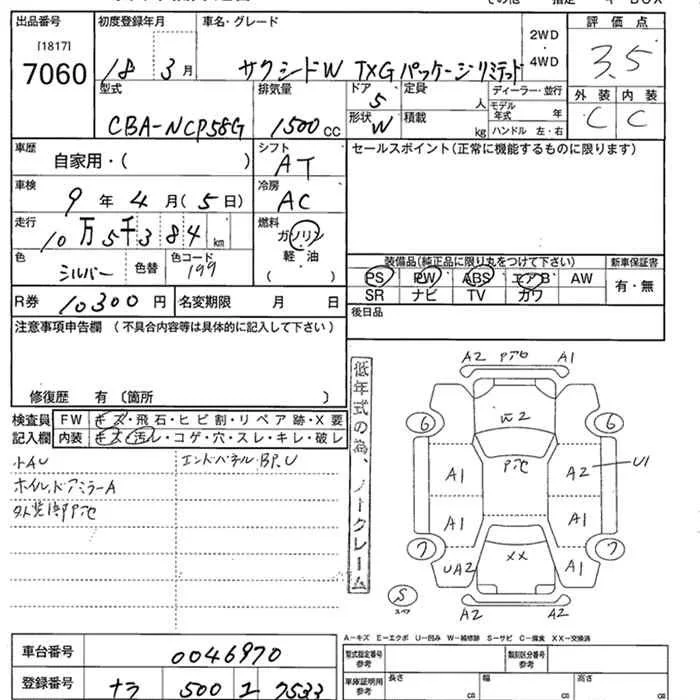 出品番号 初度登録年月 車名・グレード 2WD ・ 4WD 評価点
[1817]
7060 18 3月 サクシードW TXGパッケージリミテッド 3.5
型式 排気量 ドア 5 定員 人 ディーラー・並行 外装 内装
CBA-NCP58G 1500cc 形状 W 積載 kg モデル年式 年 C C
ハンドル 左・右
車歴 自家用・( ) シフト AT セールスポイント(正常に機能するものに限ります)
車検 9年4月(5日) 冷房 AC
走行 10万5千384km 燃料 ガソリン
色 シルバー 色替 色コード 199 軽・油 ( )
装備品(純正品に限り丸をつけて下さい) 新車保証書
PS PW ABS エアB AW 有・無
SR ナビ TV カワ
R券 10300円 名変期限 月 日 後日品
注意事項申告欄 (不具合内容等は具体的に記入して下さい)
修復歴 有〔箇所 〕
検査員記入欄 FW キズ・飛石・ヒビ割・リペア跡・X要
内装 キズ・汚レ・コゲ・穴・スレ・キレ・破レ
エンドパネルBP.U
ホイル,ドアミラーA
低年式の為、ノークレーム
A2 A1
6 W2 6
A1 A2 U1
A1 A1
7 UA2 XX A1 7
S スペア
A2 A2
A―キズ E―エクボ U―凹み W―補修跡 S―サビ C―腐食 XX―交換済
車台番号 0046970 型式指定番号 参考 類別区分番号 参考
登録番号 ナラ 500 7533 車庫証明用 参考 長さ cm 幅 cm 高さ cm